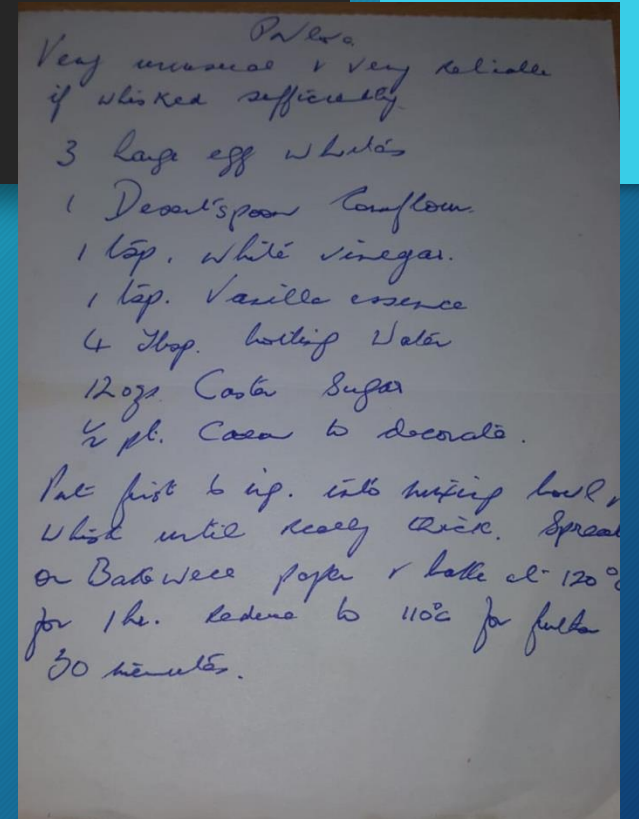 Pavlova
Very unusual & very reliable
if whisked sufficiently.
3 large egg whites
1 Desertspoon Cornflour.
1 tsp. white vinegar.
1 tsp. Vanilla essence
4 Tbsp. boiling Water
12 ozs. Caster Sugar
½ pt. Cream to decorate.
Put first 6 ing. into mixing bowl &
whisk until really thick. Spread
on Bakewell paper & bake at 120°
for 1 hr. Reduce to 110°C for further
30 minutes.